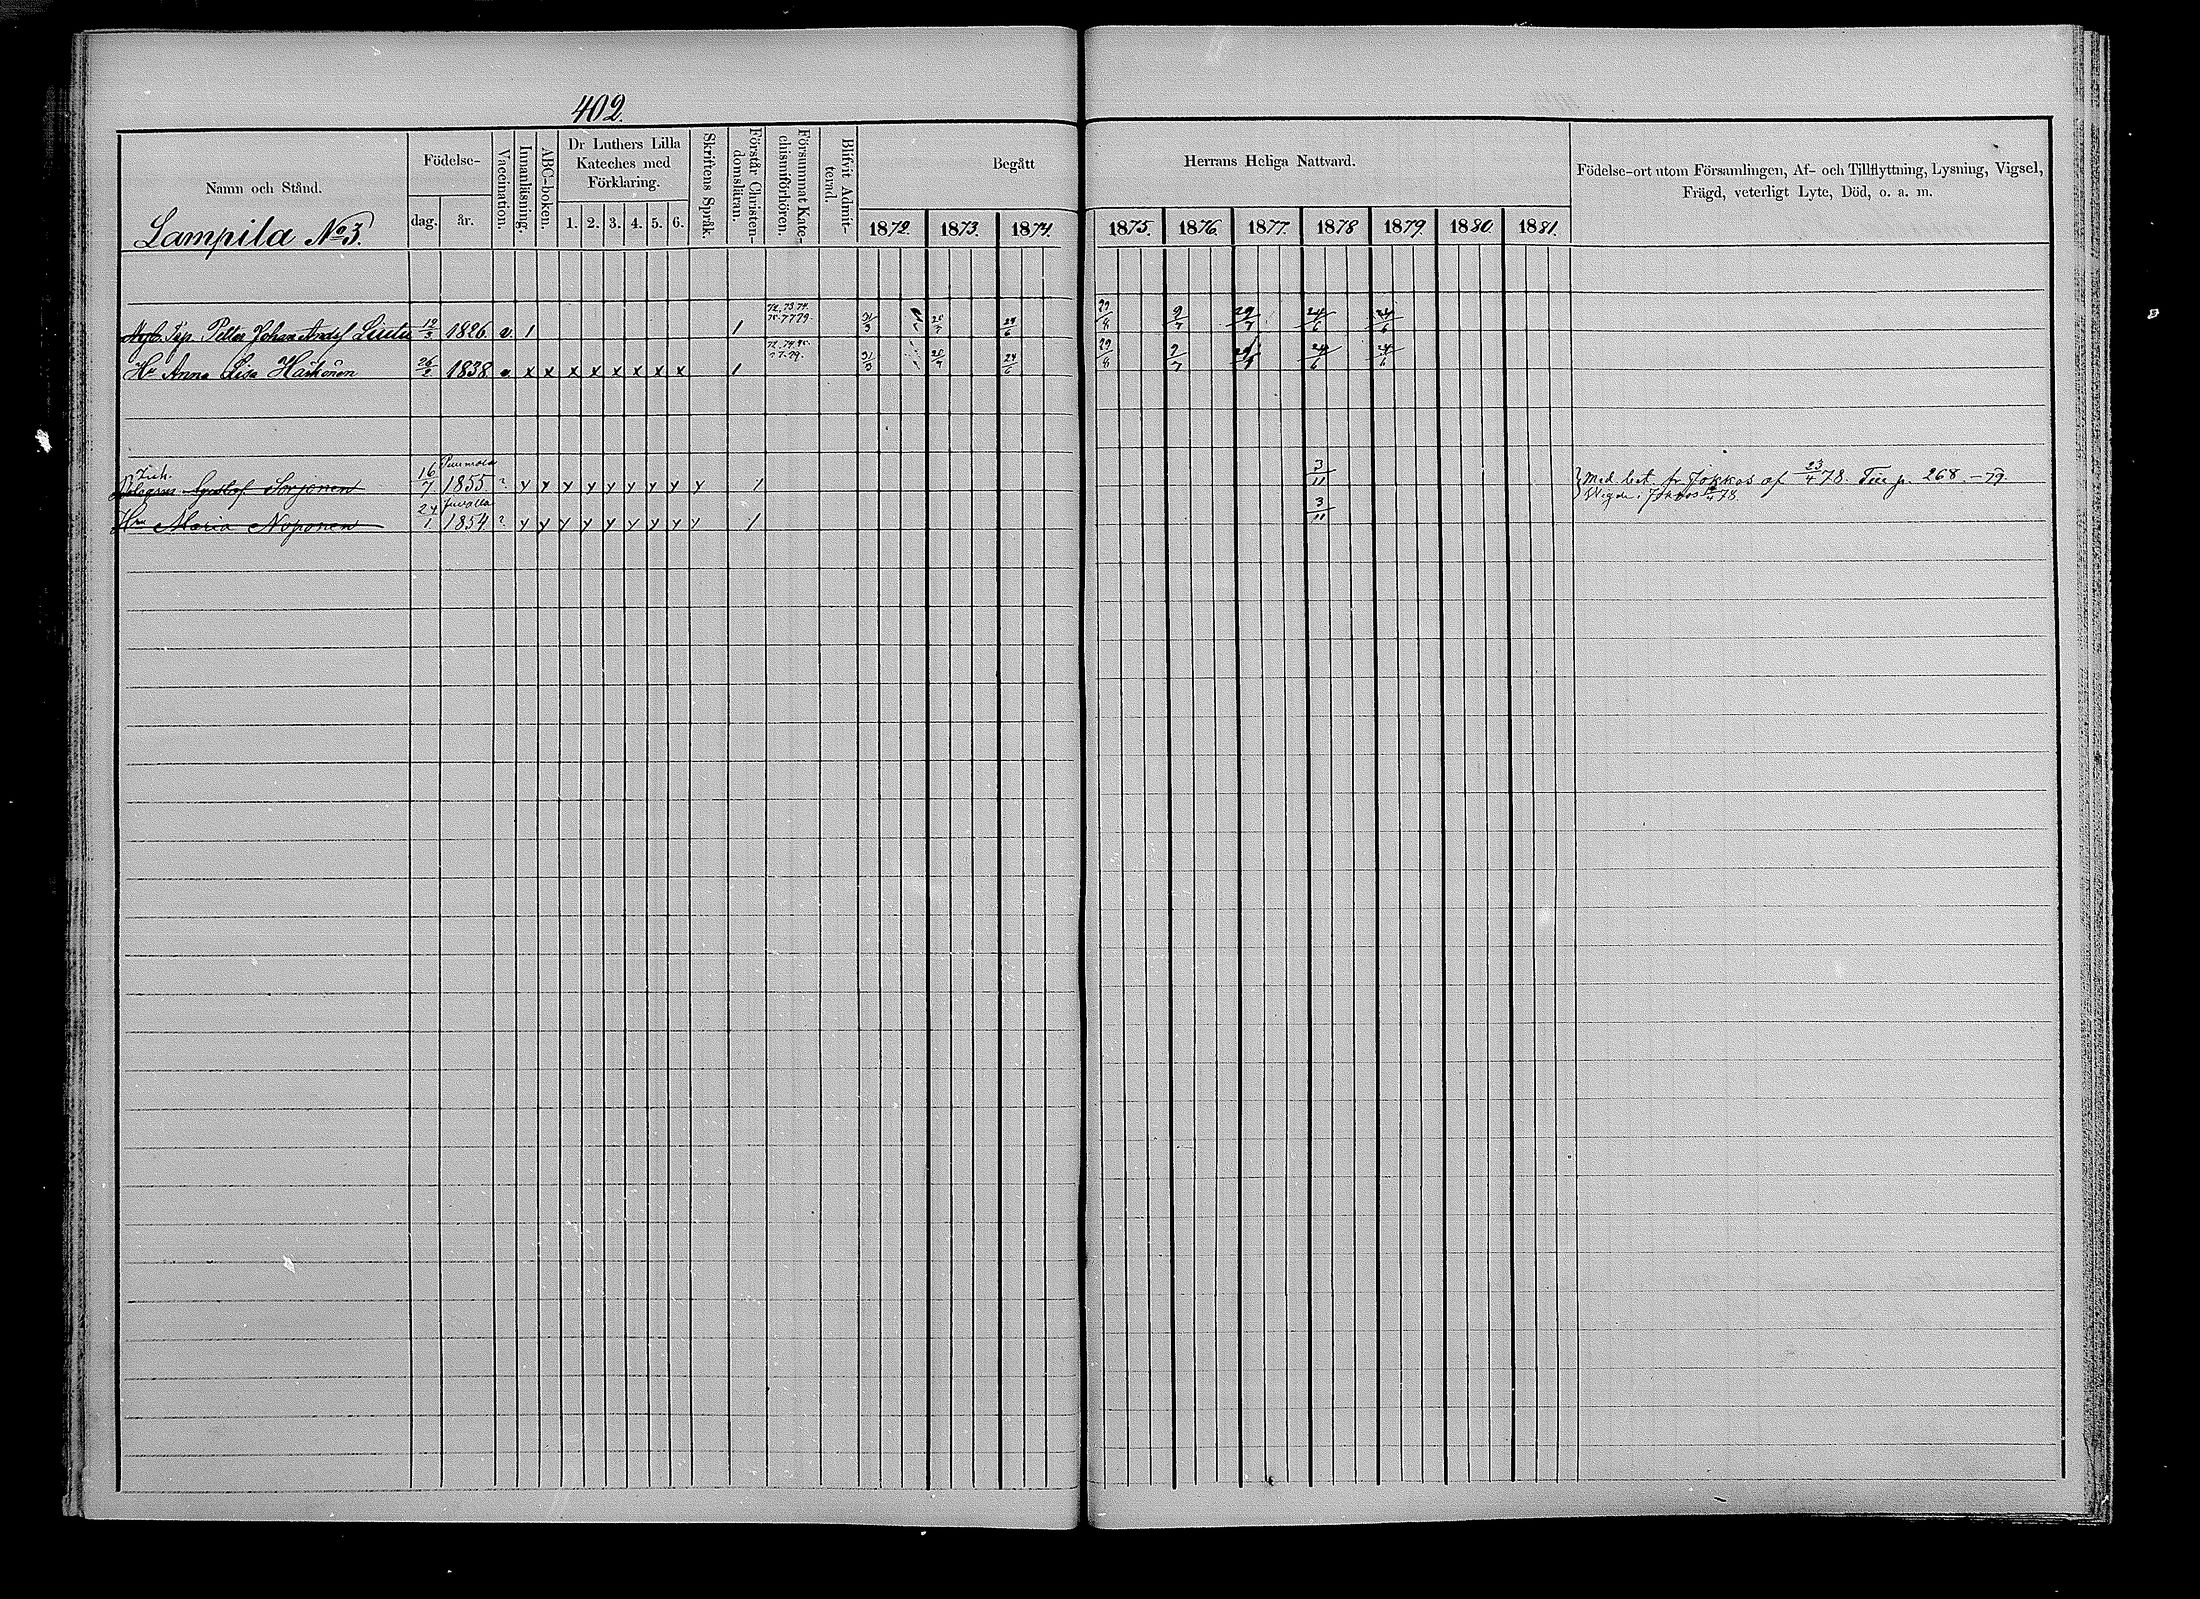 402.
Namn och Stånd.
Lampila No 3.
Födelse-
dag. år.
Vaccination.
Innanläsning.
ABC-boken.
Dr Luthers Lilla
Kateches med
Förklaring.
1. 2. 3. 4. 5. 6.
Skriftens Språk.
Förstår Christen-
domsläran.
Försummat Kate-
chismiförhören.
Blifvit Admit-
terad.
Begått Herrans Heliga Nattvard.
1872. 1873. 1874. 1875. 1876. 1877. 1878 1879 1880 1881.
Födelse-ort utom Församlingen, Af- och Tillflyttning, Lysning, Vigsel,
Frägd, veterligt Lyte, Död, o. a. m.
72. 73. 74.
Petter Johan Andsf 1826 v. 1 1 31/3 20/7 24/6 29/8 9/7 29/7 24/6 24/6
Hu Anna Lisa Haikonen 26/2 1838 v x x x x x x x x 1 31/3 20/7 24/6 29/8 9/7 29/7 24/6 24/6
Puumala
Gustaf Sorjonen 16/7 1855 ? y y y y y y y y y 1 3/11 Med bet. fr Jokkas af 23/4 78. p. 268 -79.
Vigde i Jokkas 78
Hu Maria Noponen 24/1 1854 ? y y y y y y y y y 1 3/11